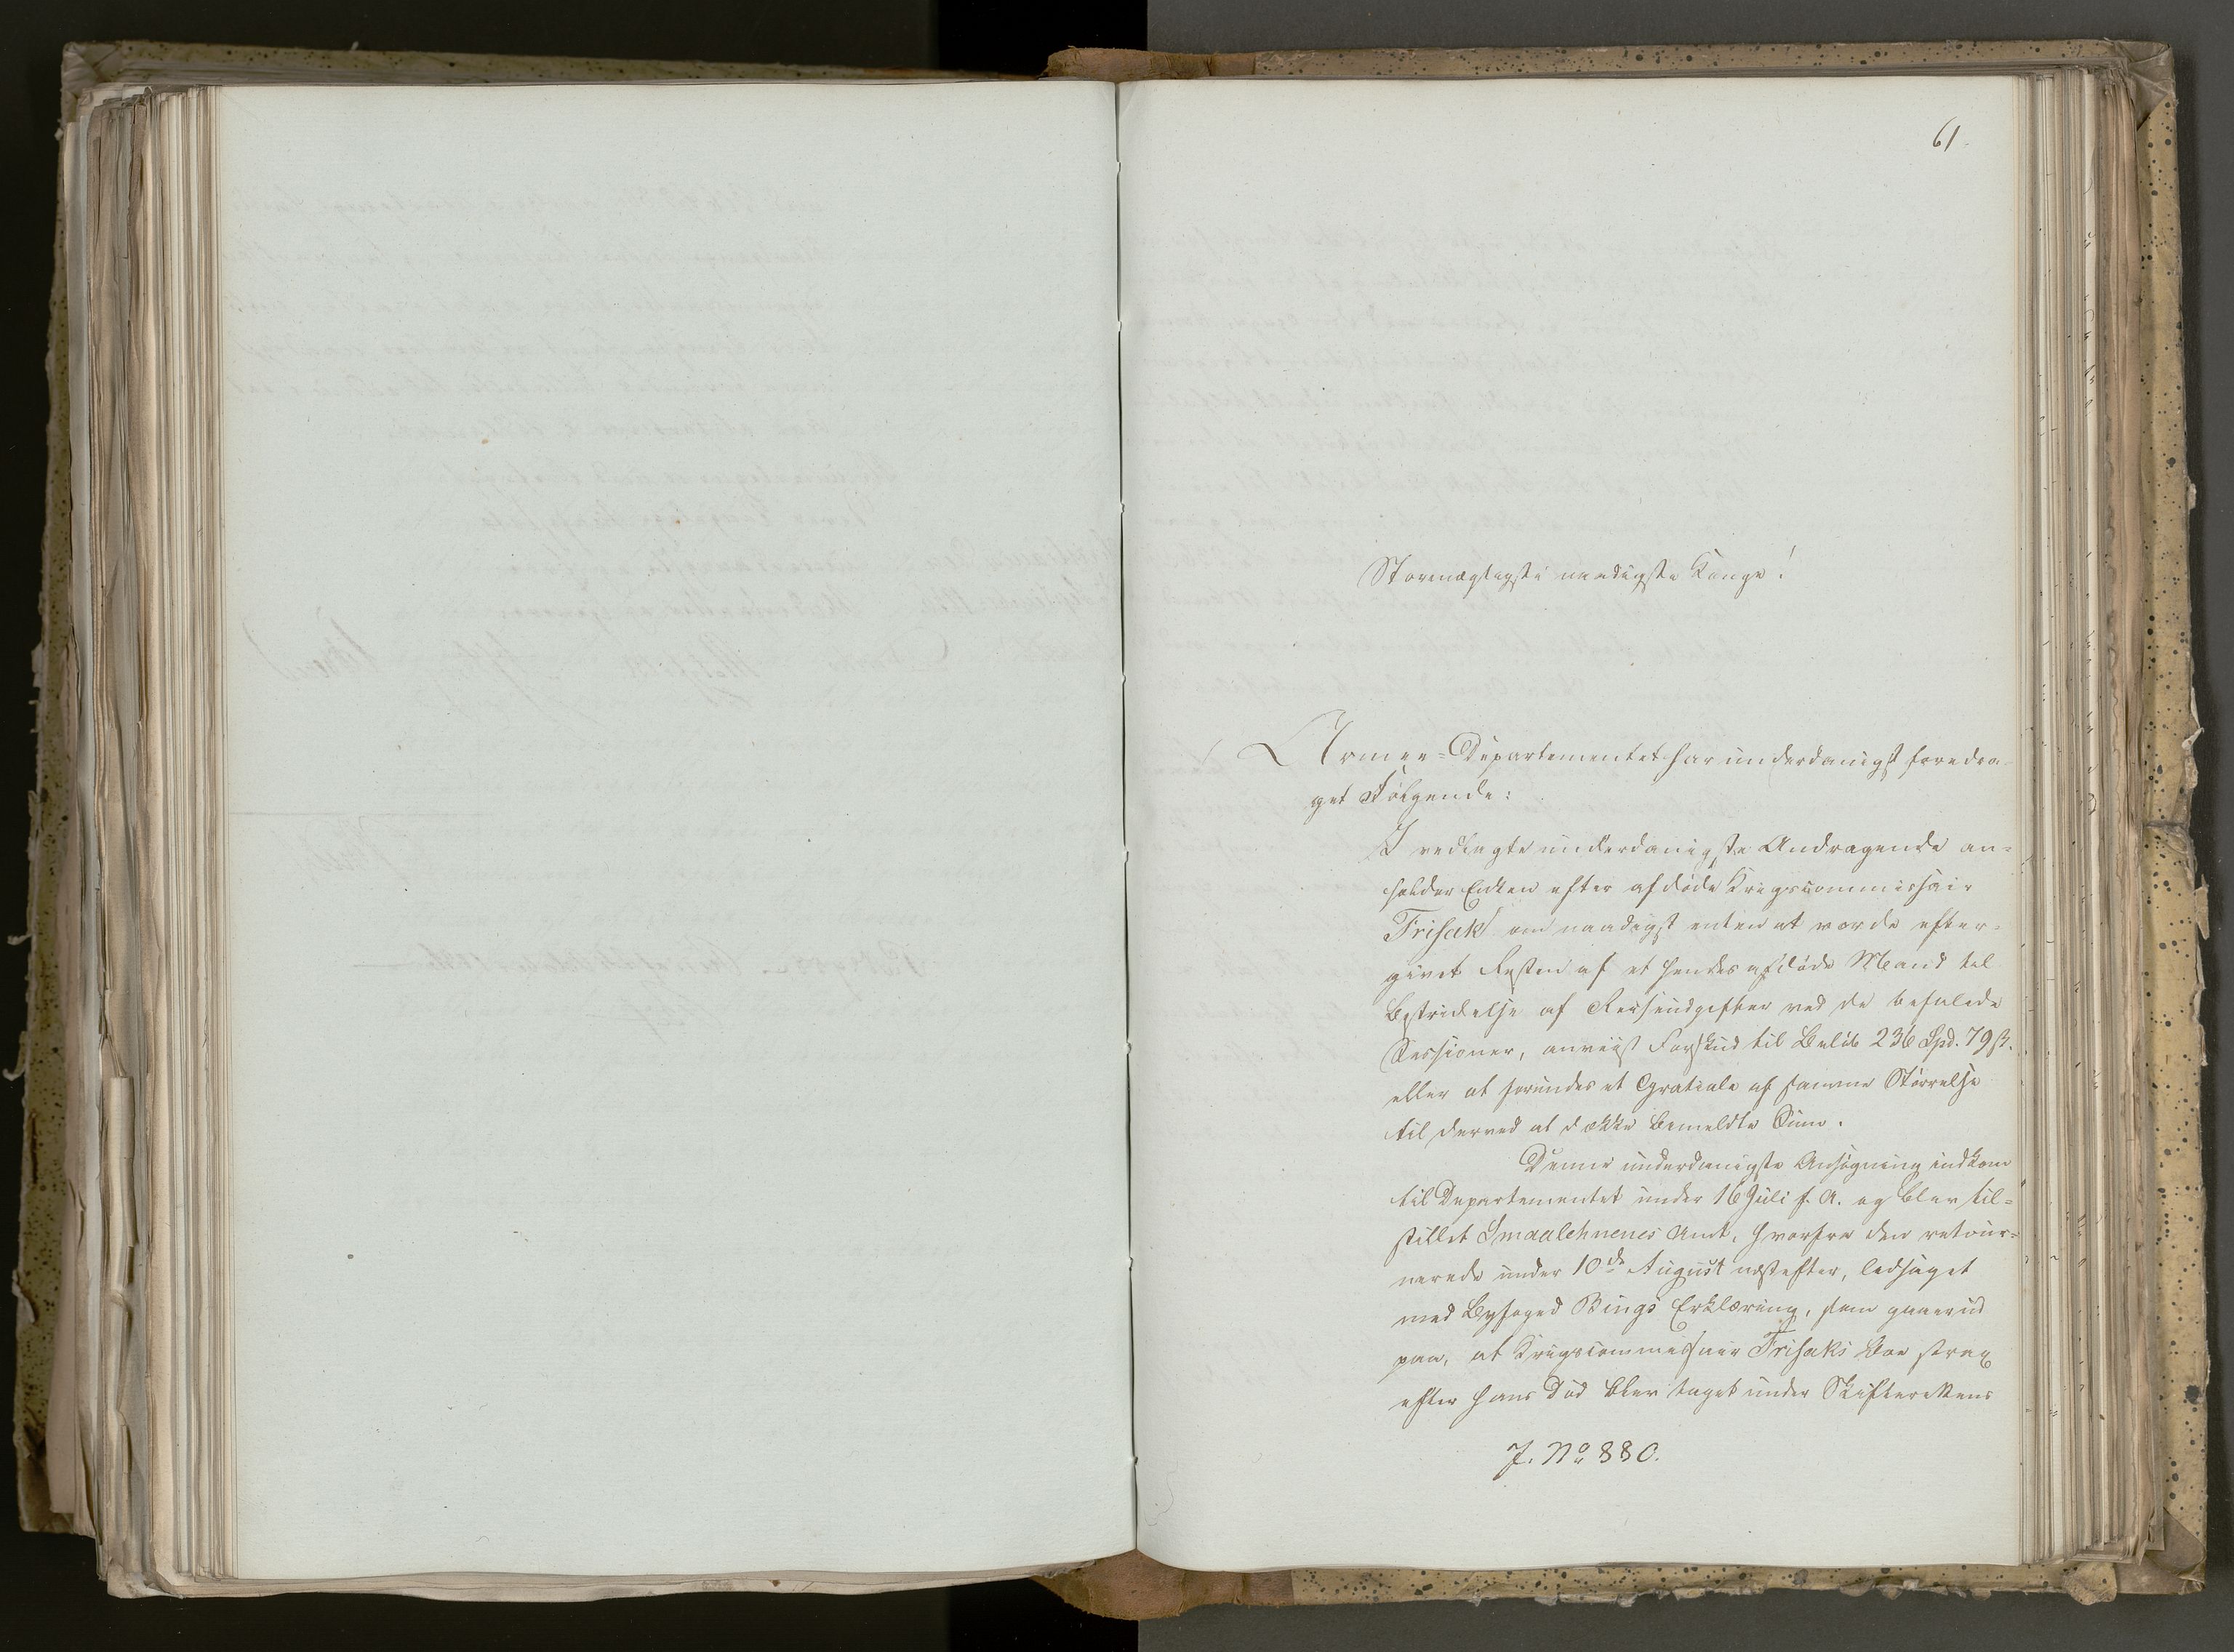 61.
Stormægtigste naadigste Konge!
Armee-Departementet har underdanigst foredra-
get Følgende:
I vedlagte underdanigste Andragende an-
holder Enken efter afdøde Krigscommissair
Frisak om naadigst enten at vorde efter-
givet Resten af et hendes afdøde Mand til
Bestridelse af Reiseudgifter ved de befalede
Sessioner, anviist Forskud til Beløb 236 Spd. 79 ß.
eller at forundes et Gratiale af samme Størrelse
til derved at dække bemeldte Sum.
Denne underdanigste Ansøgning indkom
til Departementet under 16 Juli f. A. og blev til-
stillet Smaalehnenes Amt, hvorfra den retour-
nerede under 10de August næstefter, ledsaget
med Byfoged Bings Erklæring, som gaaer ud
paa, at Krigscommissair Frisaks Boe strax
efter hans Død blev taget under Skifterettens
J. No 880.